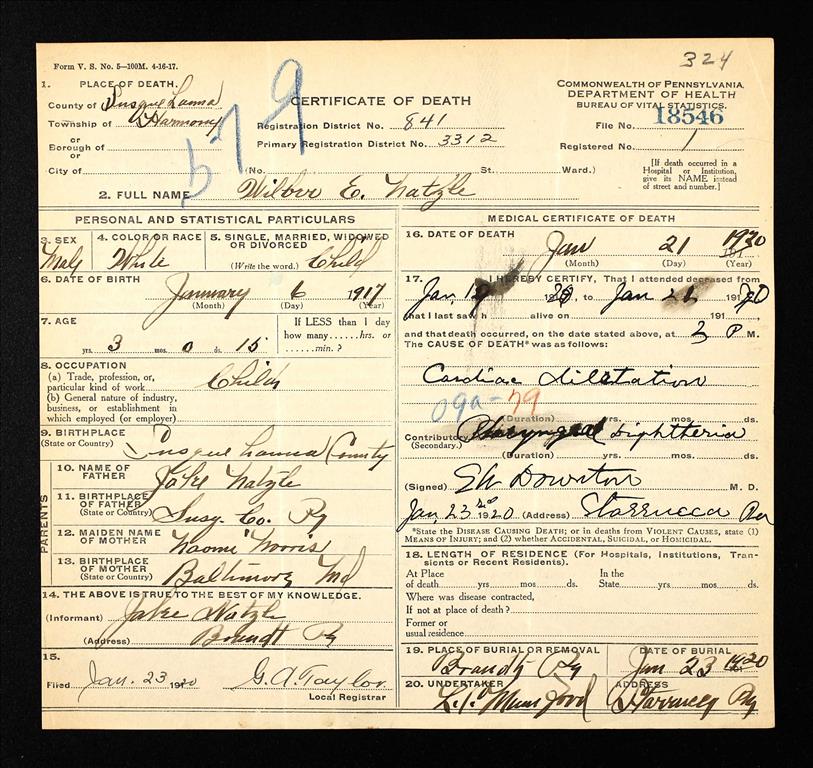 324
Form V. S. No. 5—100M. 4-16-17.
1. PLACE OF DEATH.
County of Susquehanna
Township of Harmony
or
Borough of
or
City of
579
CERTIFICATE OF DEATH
Registration District No. 841
Primary Registration District No. 3312
(No. St. Ward.)
COMMONWEALTH OF PENNSYLVANIA
DEPARTMENT OF HEALTH
BUREAU OF VITAL STATISTICS.
File No. 18546
Registered No. 1
[If death occurred in a
Hospital or Institution,
give its NAME instead
of street and number.]
2. FULL NAME Wilbur E. Natzle
PERSONAL AND STATISTICAL PARTICULARS
3. SEX
Male
4. COLOR OR RACE
White
5. SINGLE, MARRIED, WIDOWED
OR DIVORCED
(Write the word.) Child
6. DATE OF BIRTH
January 6 1917
(Month) (Day) (Year)
7. AGE
yrs. 3 mos. 0 ds. 15
If LESS than 1 day
how many hrs. or
min.?
8. OCCUPATION
(a) Trade, profession, or,
particular kind of work Child
(b) General nature of industry,
business, or establishment in
which employed (or employer)
9. BIRTHPLACE
(State or Country) Susquehanna County
PARENTS
10. NAME OF
FATHER Jake Natzle
11. BIRTHPLACE
OF FATHER
(State or Country) Susq. Co. Pa
12. MAIDEN NAME
OF MOTHER Naomi Norris
13. BIRTHPLACE
OF MOTHER
(State or Country) Baltimore Md
14. THE ABOVE IS TRUE TO THE BEST OF MY KNOWLEDGE.
(Informant) Jake Natzle
(Address) Brandt Pa
15.
Filed Jan. 23 1920 G. A. Taylor
Local Registrar
MEDICAL CERTIFICATE OF DEATH
16. DATE OF DEATH
Jan 21 1920
(Month) (Day) (Year)
17. I HEREBY CERTIFY, That I attended deceased from
Jan, 19 1920, to Jan 21 1920
that I last saw h alive on 191
and that death occurred, on the date stated above, at 3 P M.
The CAUSE OF DEATH* was as follows:
Cardiac dilatation
09a-79
(Duration) yrs. mos. ds.
Contributory Pharyngeal Diphtheria
(Secondary.)
(Duration) yrs. mos. ds.
(Signed) Downton M. D.
Jan, 23 1920 (Address) Starrucca Pa
*State the DISEASE CAUSING DEATH; or in deaths from VIOLENT CAUSES, state (1)
MEANS OF INJURY; and (2) whether ACCIDENTAL, SUICIDAL, or HOMICIDAL.
18. LENGTH OF RESIDENCE (For Hospitals, Institutions, Tran-
sients or Recent Residents).
At Place In the
of death yrs. mos. ds. State yrs. mos. ds.
Where was disease contracted,
If not at place of death?
Former or
usual residence
19. PLACE OF BURIAL OR REMOVAL
Brandt, Pa
DATE OF BURIAL
Jan 23 1920
20. UNDERTAKER
ADDRESS
Starrucca Pa